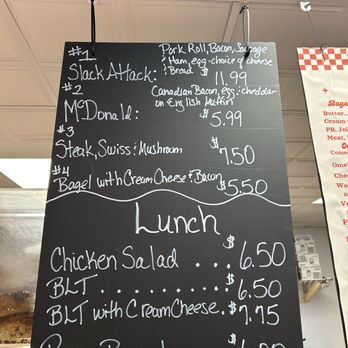 #1 Pork Roll, Bacon, Sausage
& Ham, egg - choice of cheese
Slack Attack: & Bread $11.99
#2 Canadian Bacon, egg & cheddar
on English Muffin
McDonald: $5.99
#3
Steak, Swiss & Mushroom $7.50
#4
Bagel with Cream Cheese & Bacon $5.50
Lunch
Chicken Salad ... $6.50
BLT ..... $6.50
BLT with Cream Cheese. $7.75
Bage
Butter..
Cream
PB, Jel
Meat,
Come